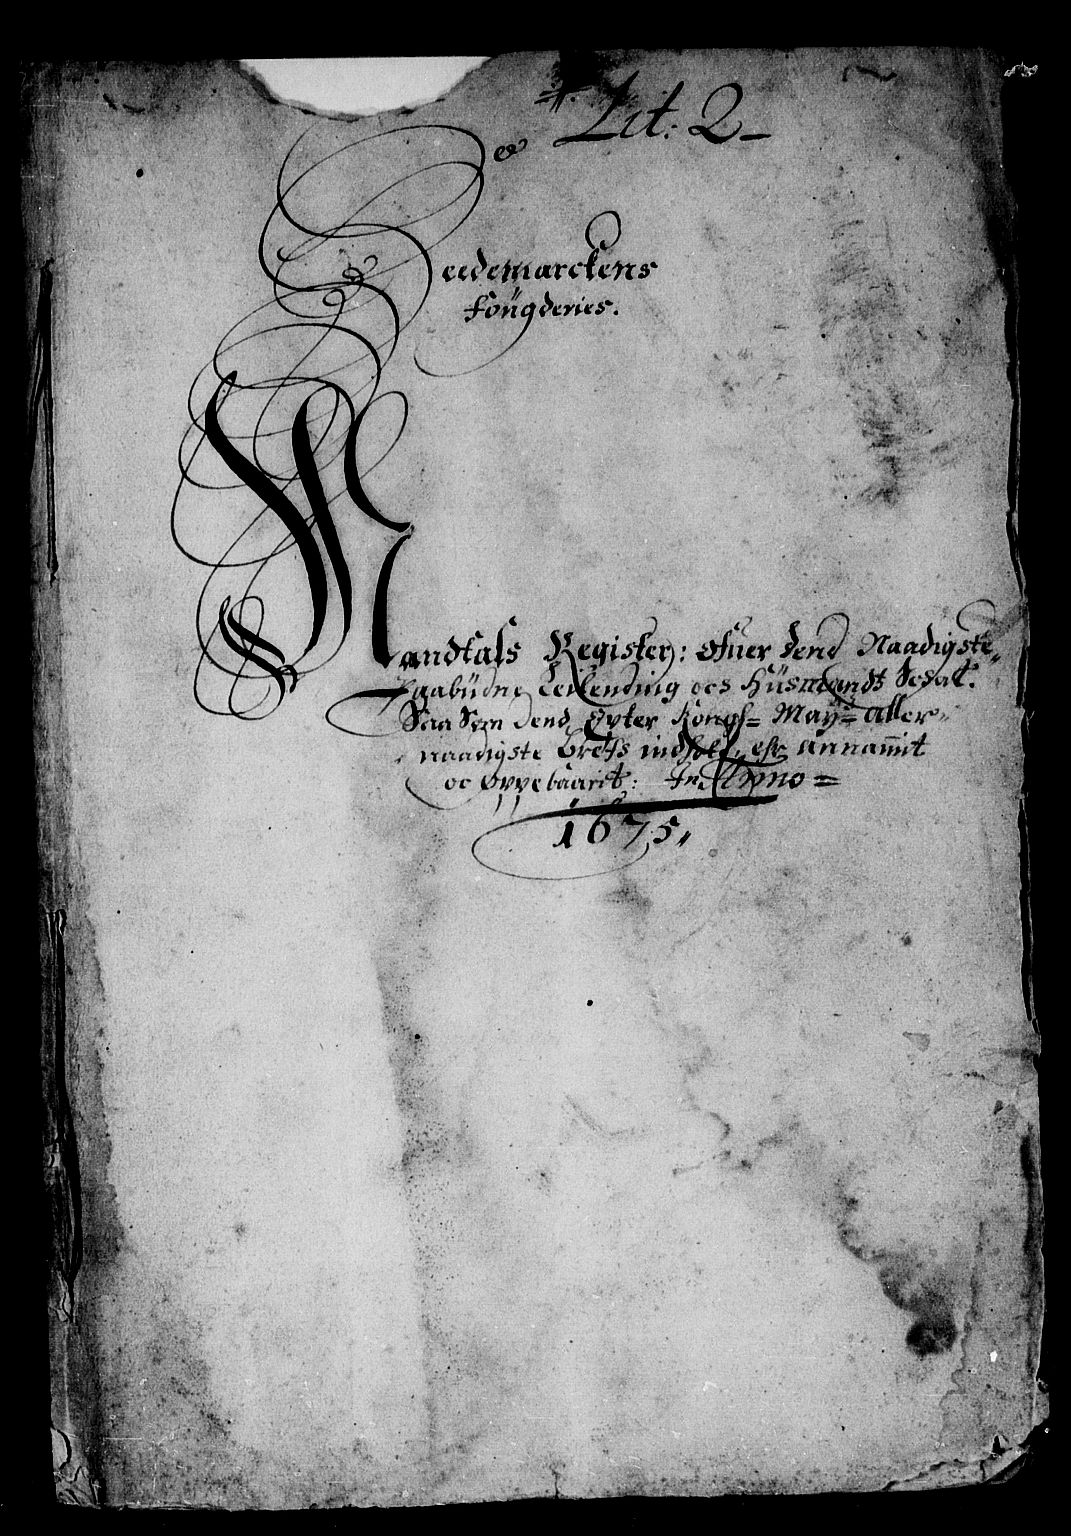 Lit: Q
Heedemarckens
Foügderies.
Mandtals Register: Ofuer dend Naadigste
Paabüdne Leilending ocs Hüsmandts Schat.
Saa Som dend Epter Kongl= May= aller
naadigste brefs indhold, er annammit
oc Oppebaarit: In Anno =
1675